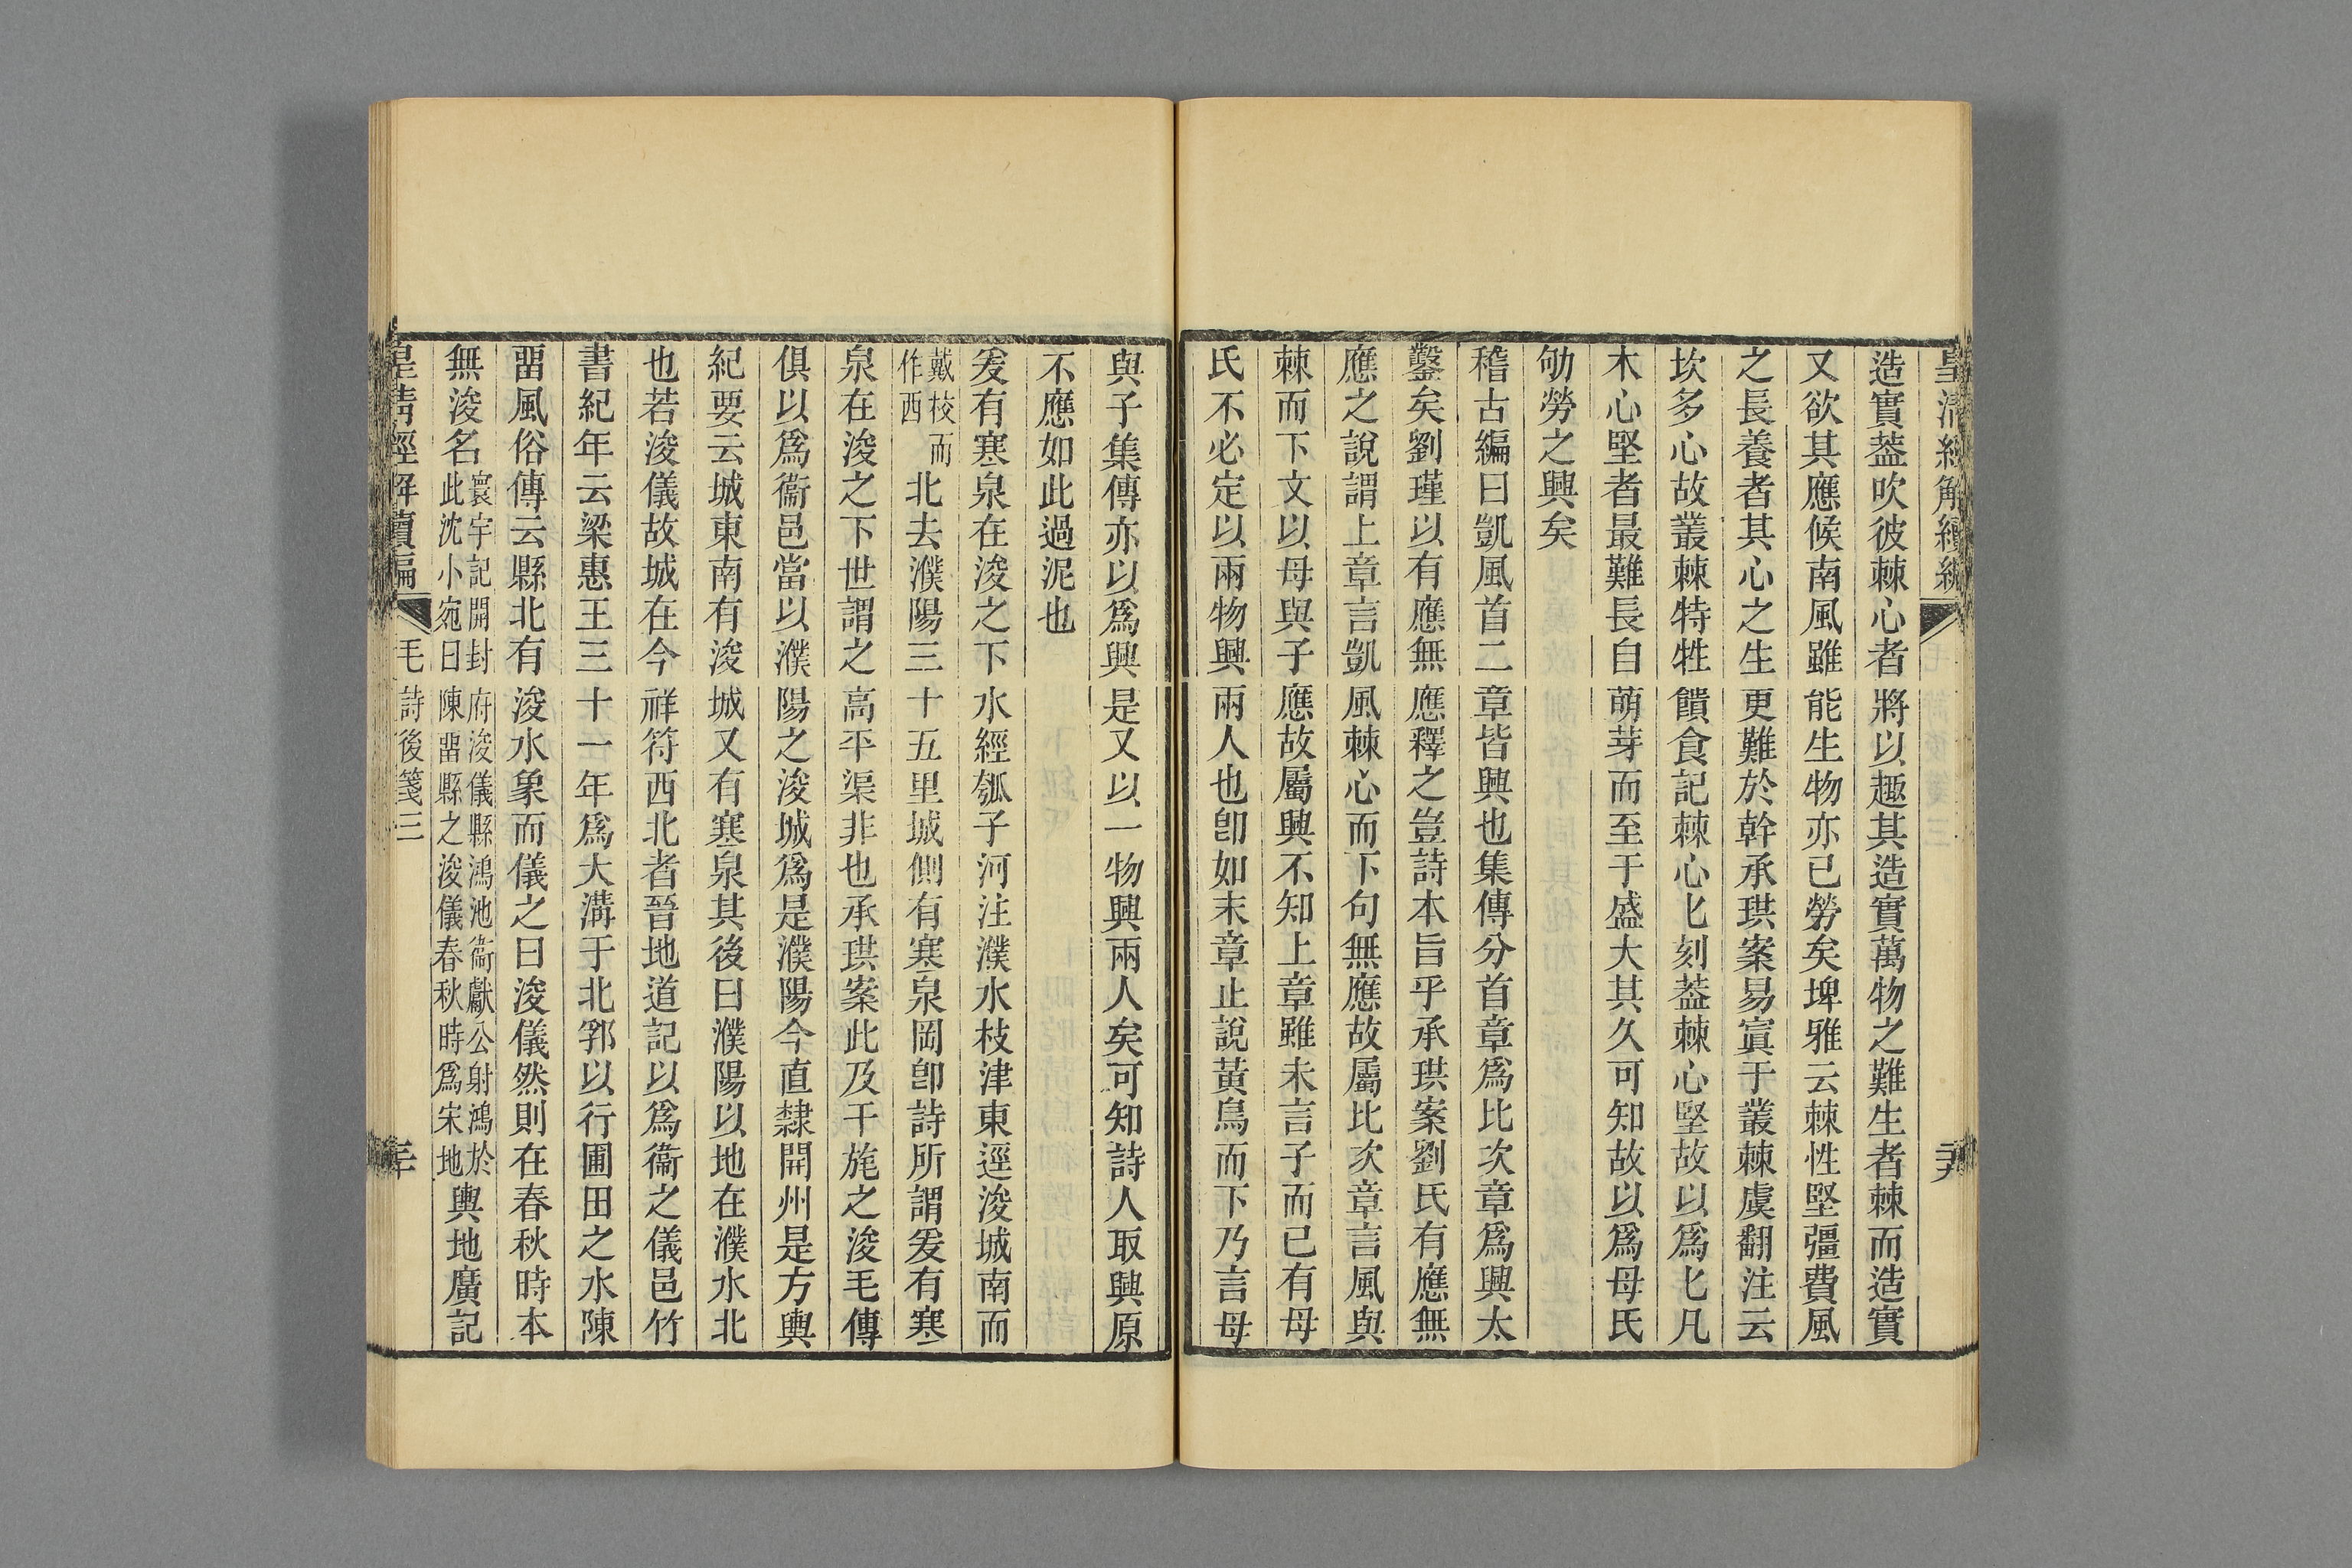 皇清經解續編
造實葢吹彼棘心者將以趣其造實萬物之難生者棘而造實
又欲其應候南風雖能生物亦已勞矣埤雅云棘性堅彊費風
之長養者其心之生更難於幹承珙案易寘于叢棘虞翻注云
坎多心故叢棘特牲饋食記棘心匕刻葢棘心堅故以爲匕凡
木心堅者最難長自萌芽而至于盛大其久可知故以爲母氏
劬勞之興矣
稽古編曰凱風首二章皆興也集傳分首章爲比次章爲興太
鑿矣劉瑾以有應無應釋之豈詩本旨乎承珙案劉氏有應無
應之說謂上章言凱風棘心而下句無應故屬比次章言風與
棘而下文以母與子應故屬興不知上章雖未言子而已有母
氏不必定以兩物興兩人也卽如末章止說黃鳥而下乃言母
與子集傳亦以爲興是又以一物興兩人矣可知詩人取興原
不應如此過泥也
爰有寒泉在浚之下水經瓠子河注濮水枝津東逕浚城南而
戴校而作西北去濮陽三十五里城側有寒泉岡卽詩所謂爰有寒
泉在浚之下世謂之高平渠非也承珙案此及干旄之浚毛傳
俱以爲衞邑當以濮陽之浚城爲是濮陽今直隸開州是方輿
紀要云城東南有浚城又有寒泉其後曰濮陽以地在濮水北
也若浚儀故城在今祥符西北者晉地道記以爲衞之儀邑竹
書紀年云梁惠王三十一年爲大溝于北郛以行圃田之水陳
畱風俗傳云縣北有浚水象而儀之曰浚儀然則在春秋時本
無浚名寰宇記開封府浚儀縣鴻池衞獻公射鴻於此沈小宛曰陳畱縣之浚儀春秋時爲宋地輿地廣記
皇清經解續編 毛詩後箋三 三十